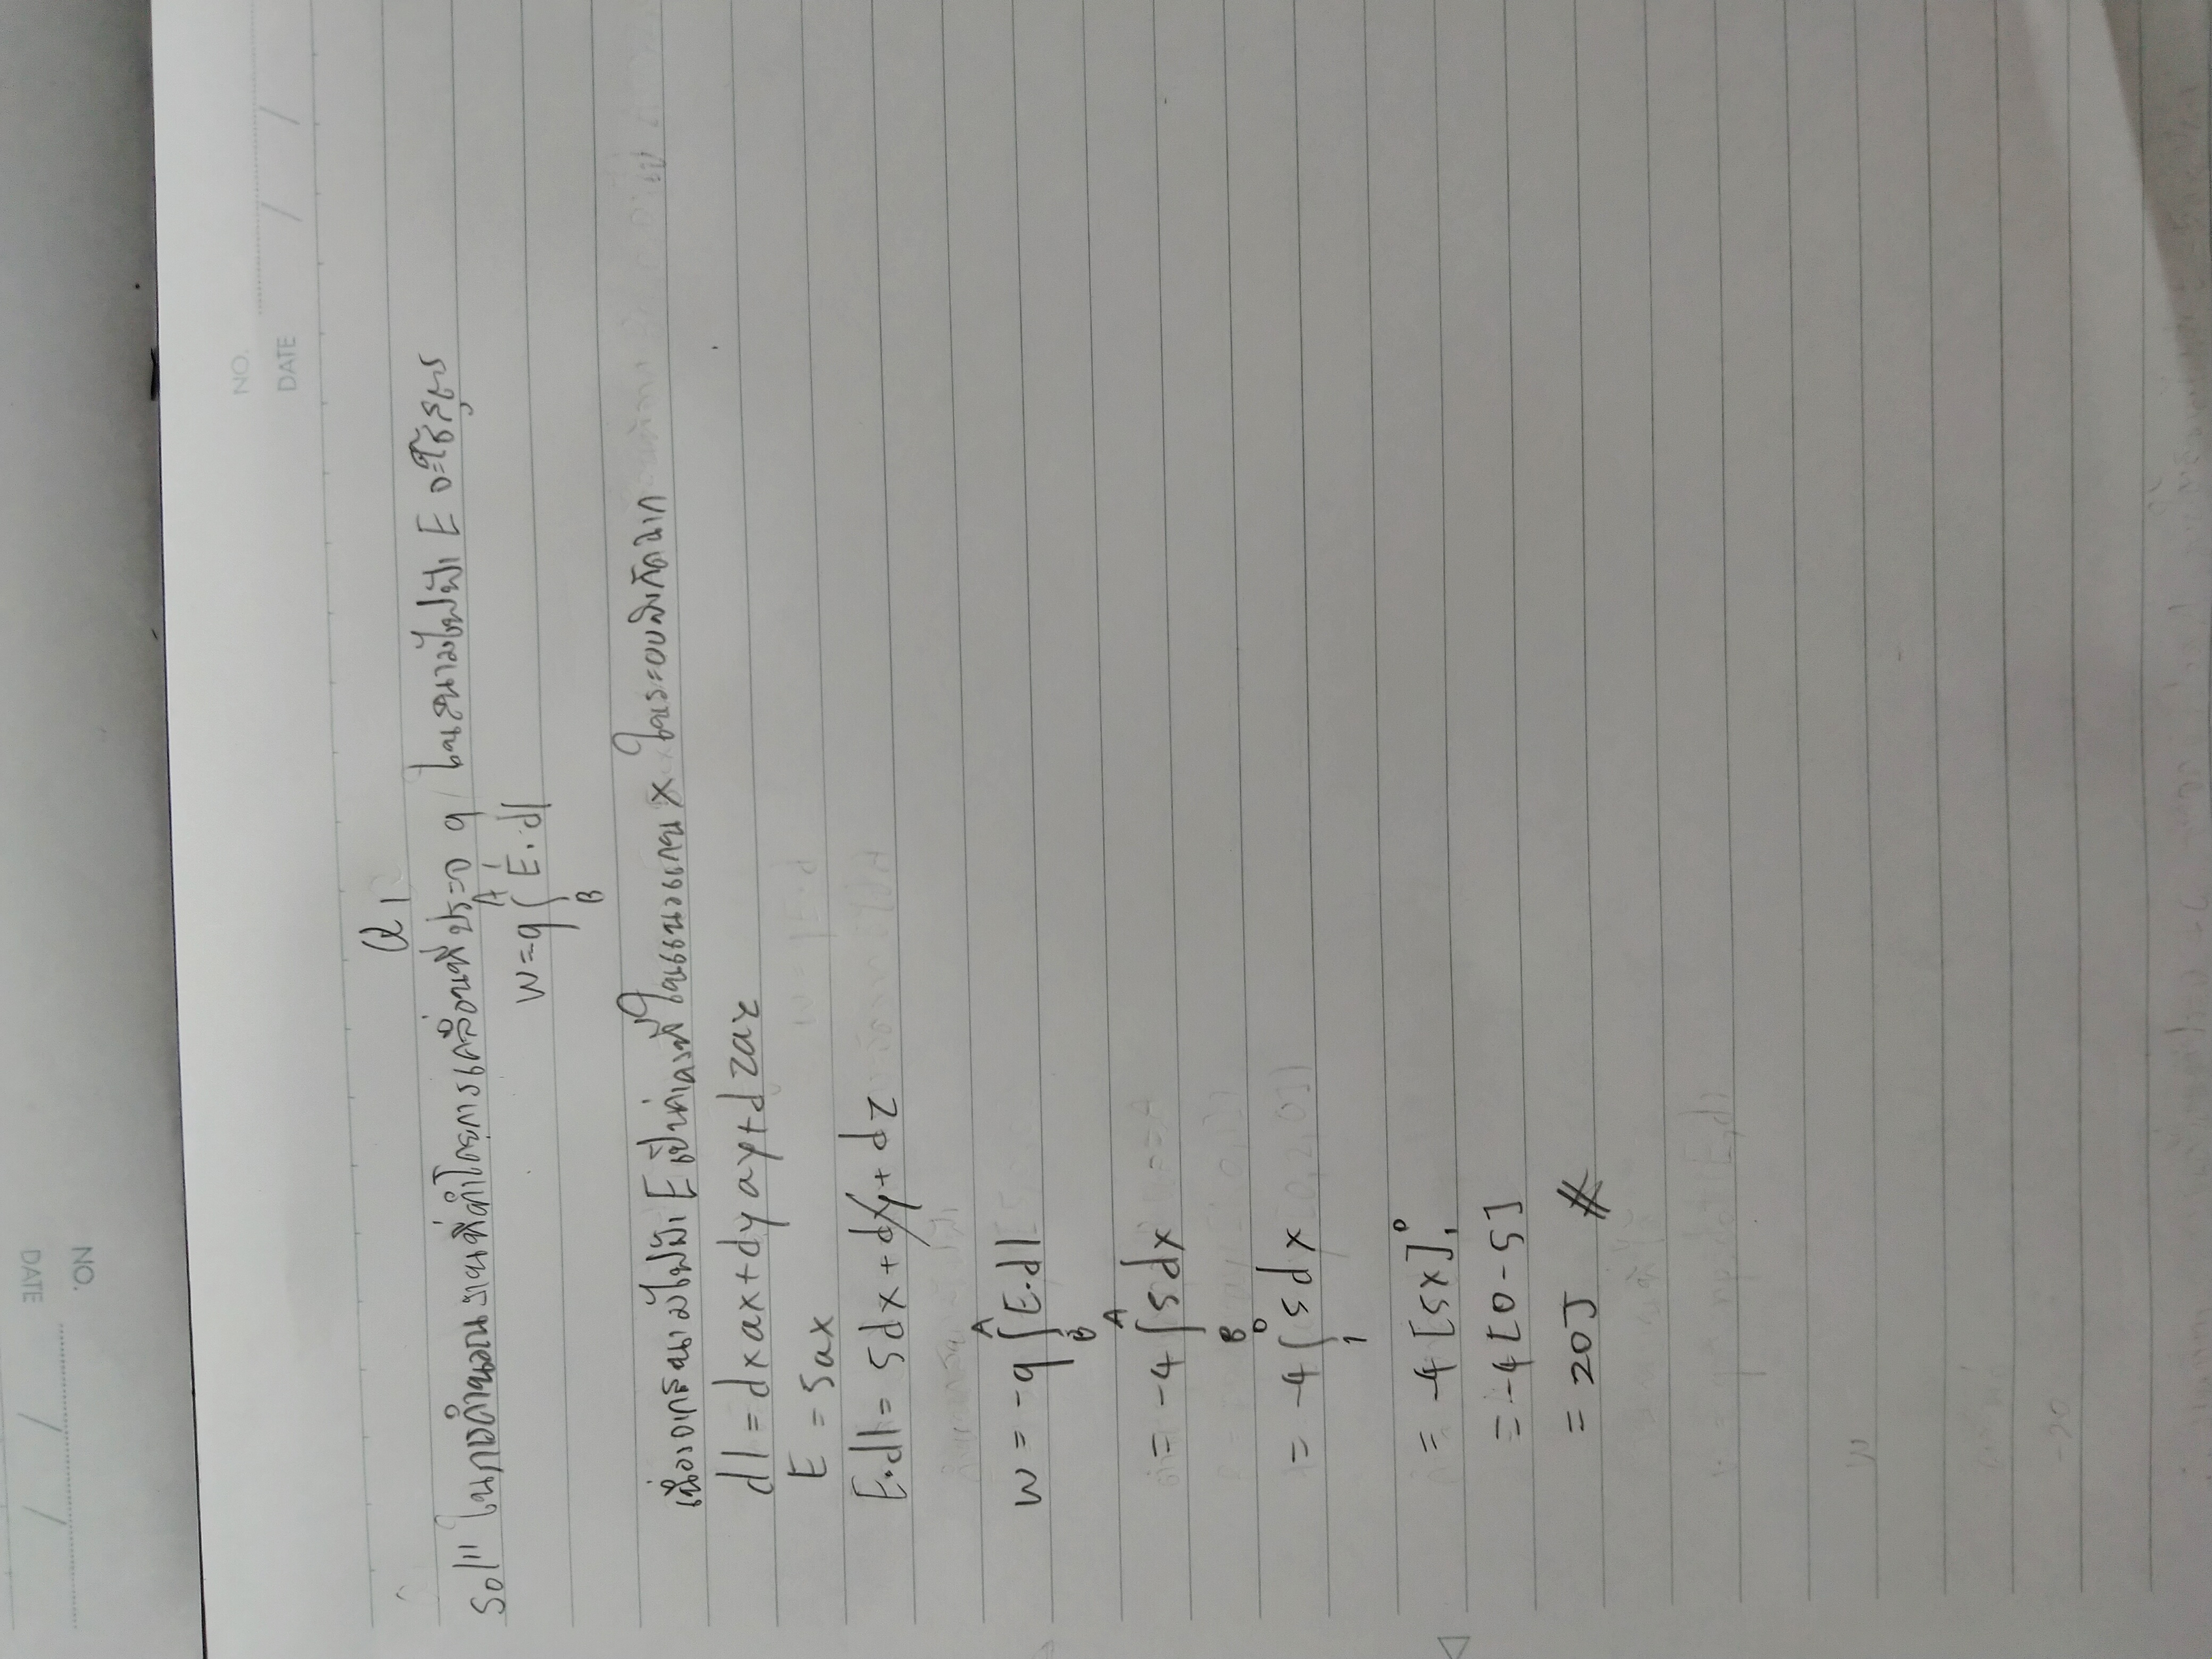 DATE / /
NO.
NO.
DATE / /
Q1
Solⁿ ในการคำนวณงานที่ทำโดยการเคลื่อนที่ประจุ q ในสนามไฟฟ้า E จะใช้สูตร
W=-q∫ E·dl
A
B
เนื่องจากสนามไฟฟ้า E เป็นค่าคงที่ ในแนวแกน x ในระบบพิกัดฉาก
dl = dxax+dyay+dzaz
E = 5ax
E·dl = 5dx+dy+dz
A
W = -q ∫E·dl
B
A
= -4 ∫5dx
B
0
= -4 ∫5dx
1
= -4 [5x]₁⁰
= -4[0-5]
= 20J #